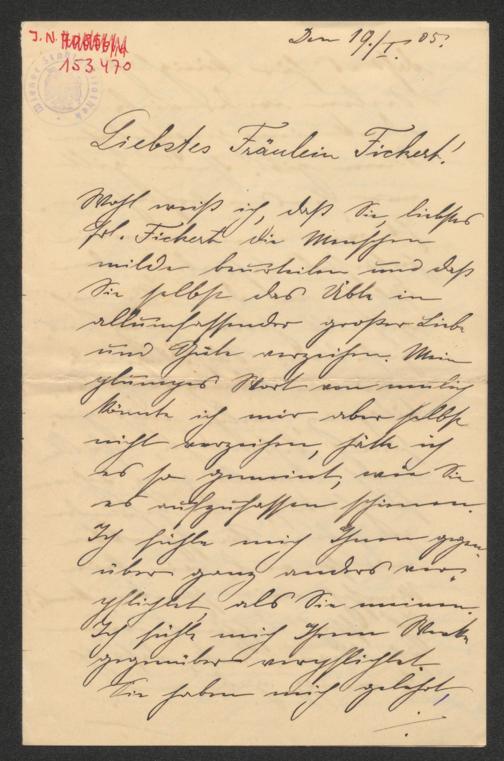 J. N.
153470
Den 19./I. 05.
Liebstes Fräulein Fickert!
Wohl weiß ich, daß Sie, liebstes
Frl. Fickert die Menschen
milde beurteilen und daß
Sie selbst das Üble in
allumfassender großer Liebe
und Güte verzeihen. Mein
Wort von neulich
könnte ich mir aber selbst
nicht verzeihen, hätte ich
es so gemeint, wie Sie
es aufzufassen schienen.
Ich fühle mich Ihnen gegen-
über ganz anders ver-
pflichtet, als Sie meinen.
Ich fühle mich Ihrem Werke
gegenüber verpflichtet.
Sie haben mich gelehrt,